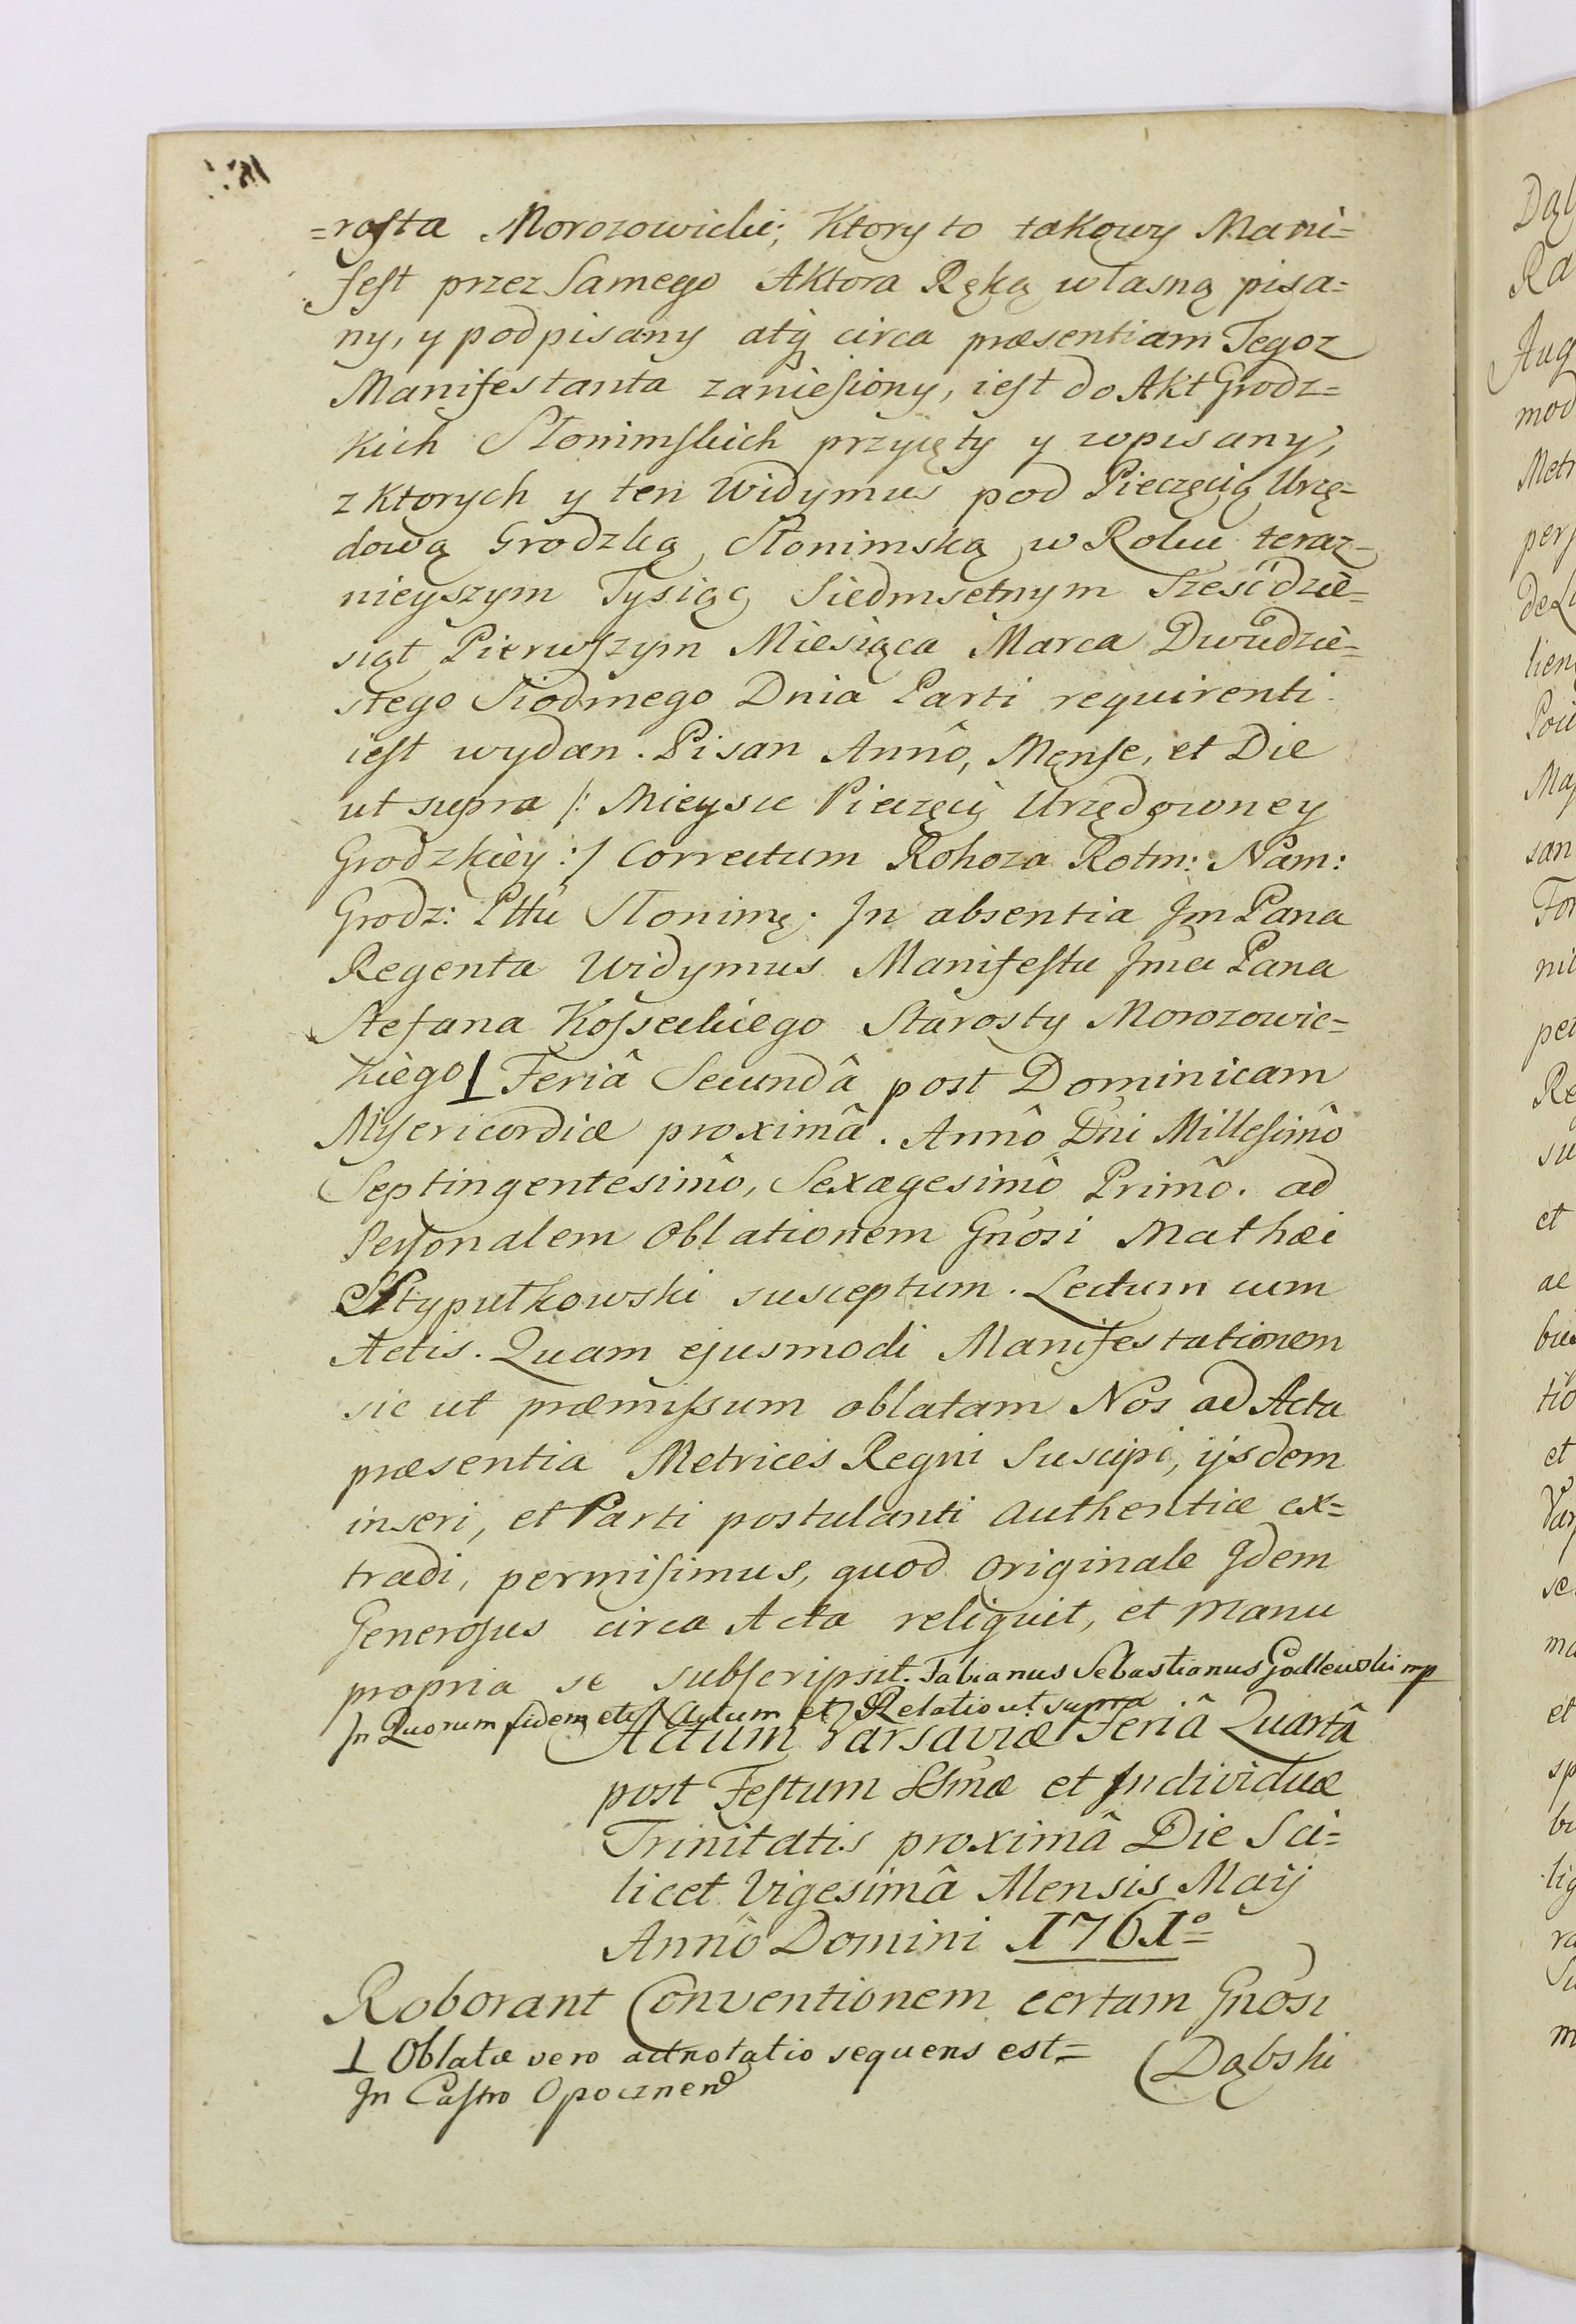 =rosta Morozowicki; Ktory to takowy Mani=
fest przez Samego Aktora Ręką własną pisa=
ny, y podpisany atq circa præsentiam Tegoz
Manifestanta zaniesiony, iest do Akt Grodz=
kich Słonimskich przyięty y wpisany,
z Ktorych y ten Widymus pod Pieczęcią Urzę=
dową Grodzką Słonimską w Roku teraz=
nieyszym Tysiąc Siedmsetnym Sześćdzie=
siąt Pierwszym Miesiąca Marca Dwudzie=
stego Siodmego Dnia Parti requirenti
iest wydan. Pisan Annô, Mense, et Die
ut supra /: Mieysce Pieczęci Urzędowney
Grodzkiey :/ Correctum Rohoza Rotm: Nam:
Grodz: Pttu Słonimº; In absentia Jm Pana
Regenta Widymus Manifestu Jmci Pana
Stefana Kosseckiego Starosty Morozowic=
kiego ⊥ Feriâ Secundâ post Dominicam
Misericordiæ proximâ. Annô Dni Millesimô
Septingentesimô, Sexagesimô Primô. ad
Personalem Oblationem Gnosi Mathæi
Stypułkowski susceptum. Lectum cum
Actis. Quam ejusmodi Manifestationem
sic ut præmissum oblatam Nos ad Acta
præsentia Metrices Regni Suscipi, ijsdem
inseri, et Parti postulanti authentice ex=
tradi, permisimus, quod Originale Idem
Generosus circa Acta reliquit, et Manu
propria se subscripsit. Fabianus Sebastianus Godlewski mp
In Quorum fidem etc Actum et Relatio ut supra
Actum Varsaviæ Feriâ Quartâ
post Festum SSmæ et Individuæ
Trinitatis proximâ Die Sci=
licet Vigesimâ Mensis Maij
Annô Domini 1761º=
Roborant Conventionem certam Gnosi
⊥ Oblatæ vero adnotatio sequens est=
(Dąbski
In Castro Opocznen